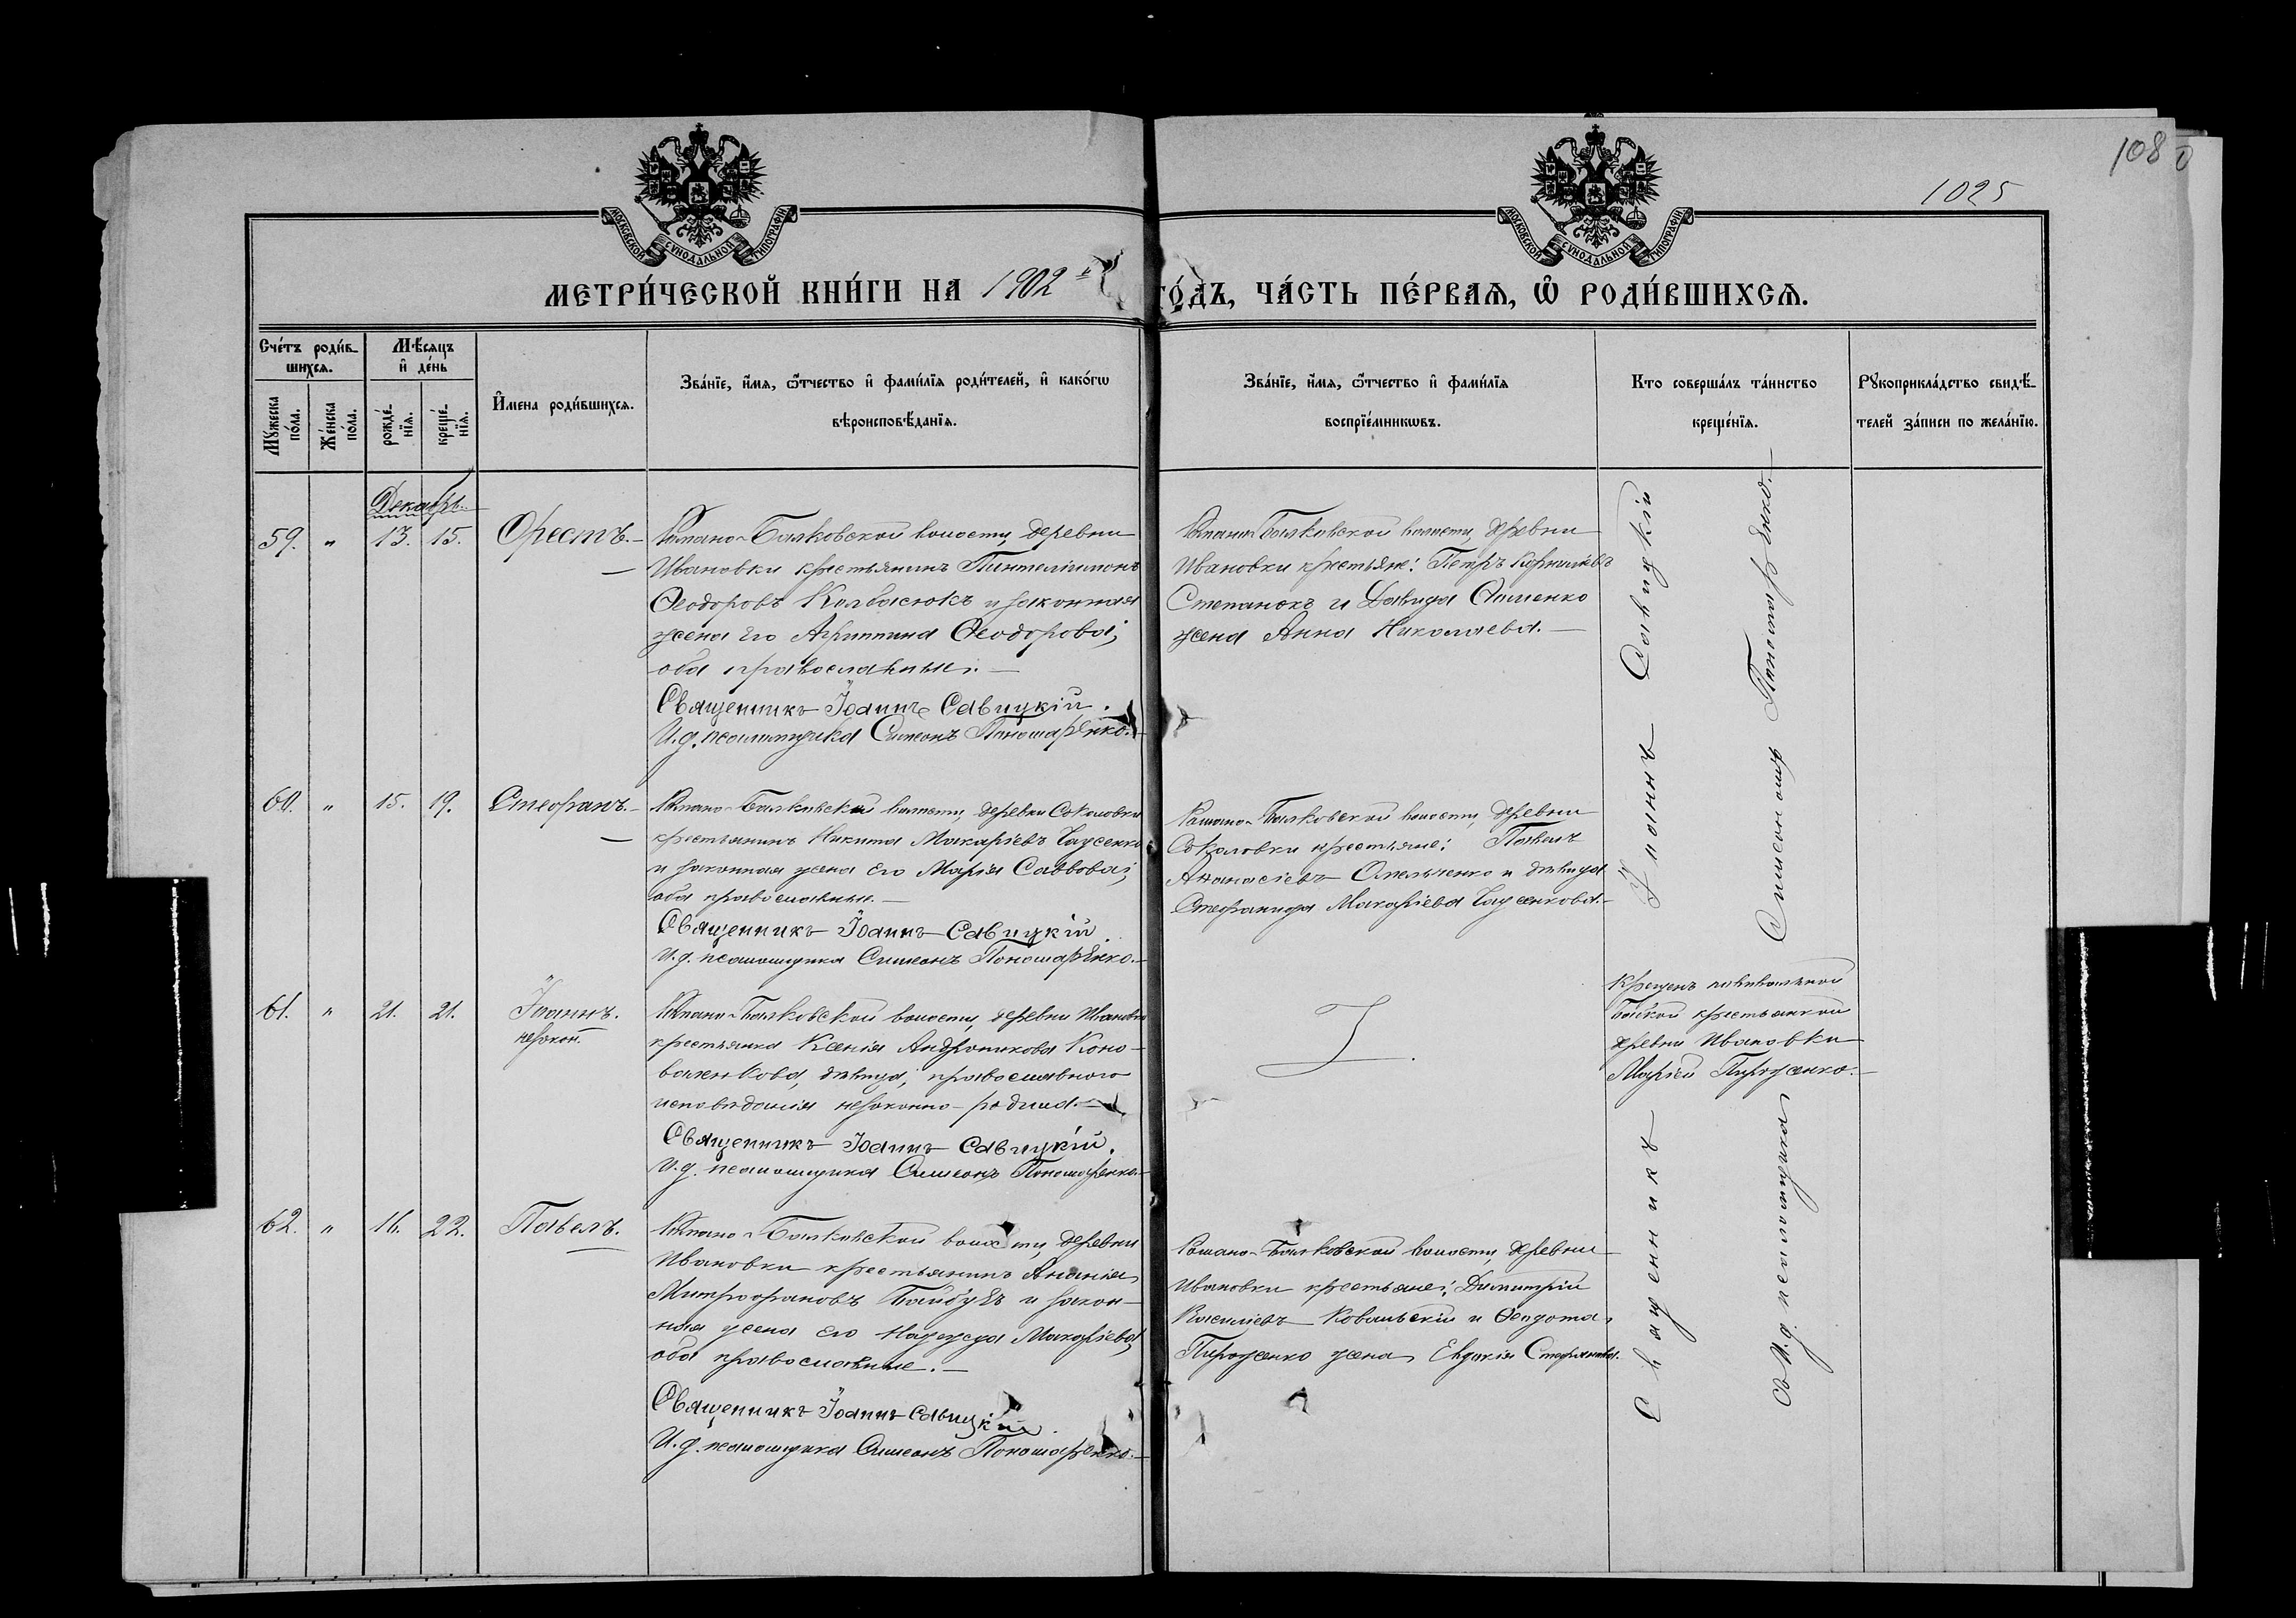 108
1025
МОСКОВСКОЙ СУНОДАЛЬНОЙ ТИПОГРАФІИ
МОСКОВСКОЙ СУНОДАЛЬНОЙ ТИПОГРАФІИ
МЕТРИ́ЧЕСКОЙ КНИ́ГИ НА 1902 й ГО́ДЪ, ЧА́СТЬ ПЕ́РВАѦ, Ѽ РОДИ́ВШИХСѦ.
Сче́тъ роди́в-
шихсѧ.
Мꙋ́жеска
по́ла.
Же́нска
по́ла.
Мѣ́сяцъ
и҆ де́нь
рожде́-
нїѧ.
креще́-
нїѧ.
И҆мена роди́вшихсѧ.
Зва́нїе, и҆́мѧ, ѻ҆́тчество и҆ фами́лїѧ роди́телей, и҆ како́гѡ
вѣроисповѣ́данїѧ.
Зва́нїе, и҆́мѧ, ѻ҆́тчество и҆ фами́лїѧ
воспрїе́мникѡвъ.
Кто соверша́лъ та́инство
креще́нїѧ.
Рꙋкоприкла́дство свидѣ́-
телей за́писи по жела́нїю.
Декабрь.
59. " 13. 15. Орестъ.
Романо-Балковской волости, деревни
Ивановки крестьянинъ Пантелимонъ
Ѳеодоровъ Колбасюкъ и законная
жена его Агриппина Ѳеодорова;
оба православные.
Священникъ Іоаннъ Савицкій.
И.д. псаломщика Симеонъ Пономаренко.
Романо-Балковской волости, деревни
Ивановки крестьяне: Петръ Корниліевъ
Степанюкъ и Давида
жена Анна Николаева.
60. " 15. 19. Стефанъ.
Романо-Балковской волости, деревни Соколовки
крестьянинъ Никита Макаріевъ
и законная жена его Марія Саввова;
оба православные.
Священникъ Іоаннъ Савицкій.
И.д. псаломщика Симеонъ Пономаренко.
Романо-Балковской волости, деревни
Соколовки крестьяне: Павелъ
Аѳанасіевъ Омельченко и дѣвица
Стефанида Макаріева
61. " 21. 21. Іоаннъ.
незакон.
Романо-Балковской волости, деревни Ивановки
крестьянка Ксенія Андроникова Коно-
валенкова, дѣвица, православного
исповѣданія незаконно-родила.
Священникъ Іоаннъ Савицкій.
И.д. псаломщика Симеонъ Пономаренко.
Крещенъ повивальной
бабкой крестьянкой
деревни Ивановки
Маріей Пироженко.
62. " 16. 22. Павелъ.
Романо-Балковской волости, деревни
Ивановки крестьянинъ Ананія
Митрофановъ Байбузъ и закон-
ная жена его Надежда Макаріева,
оба православные.
Священникъ Іоаннъ Савицкій.
И.д. псаломщика Симеонъ Пономаренко.
Романо-Балковской волости, деревни
Ивановки крестьяне: Димитрій
Василіевъ Ковальскій и Ѳеодота
Пироженко жена Евдокія Стефанова.
Священникъ Іоаннъ Савицкій
Съ И.д. псаломщика Симеономъ Пономаренко.